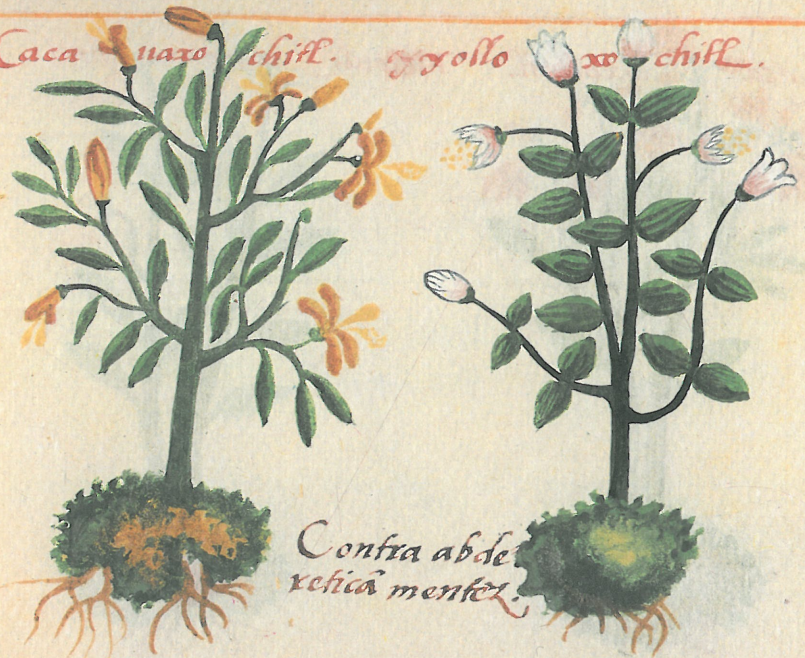 Cacauaxochitl. yyolloxochitl.
Contra abde
reticā mentē.